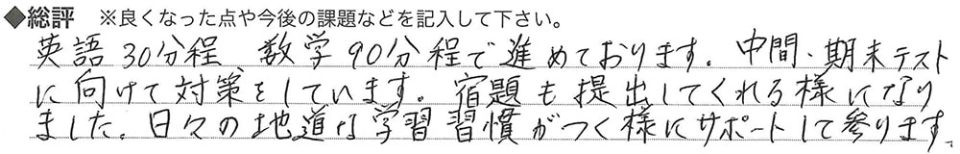 ◆総評 ※良くなった点や今後の課題などを記入して下さい。
英語30分程 数学90分程で進めております。中間・期末テスト
に向けて対策をしています。宿題も提出してくれる様になり
ました。日々の地道な学習習慣がつく様にサポートして参ります。